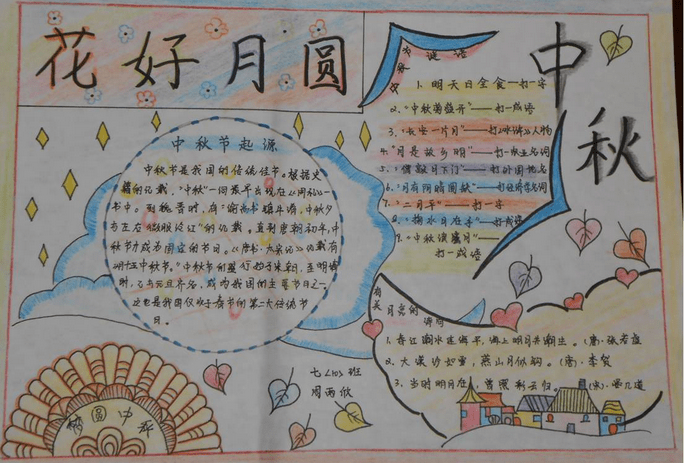 花好月圆
中秋
中秋节谜语
1、明天日全食—打一字
2、"中秋菊盛开"——打一成语
3、"长安一片月"——打《水浒》人物
4、"月是故乡明"——打一
5、"僧敲月下门"——打外国地名
6、"月有阴晴圆缺"——打经济学名词
7、"二月平"——打一字
8、"掬水月在手"——打成语
9、"中秋度蜜月"——
打一成语
中秋节起源
中秋节是我国的传统佳节。根据史
籍的记载,"中秋"一词最早出现在《周礼》一
书中。到魏晋时,有"谕尚书镇牛渚,中秋夕
与左右微服泛江"的记载。直到唐朝初年,中
秋节才成为固定的节日。《唐书·太宗记》记载有
"八月十五中秋节。"中秋节的盛行始于宋朝,至明清
时,已与元旦齐名,成为我国的主要节日之一
这也是我国仅次于春节的第二大传统节
日。
有关月亮的诗句
1、春江潮水连海平,海上明月共潮生。(唐)张若虚
2、大漠沙如雪,燕山月似钩。(唐)李贺
3、当时明月在,曾照彩云归。(宋)晏几道
七〈10〉班
周雨欣